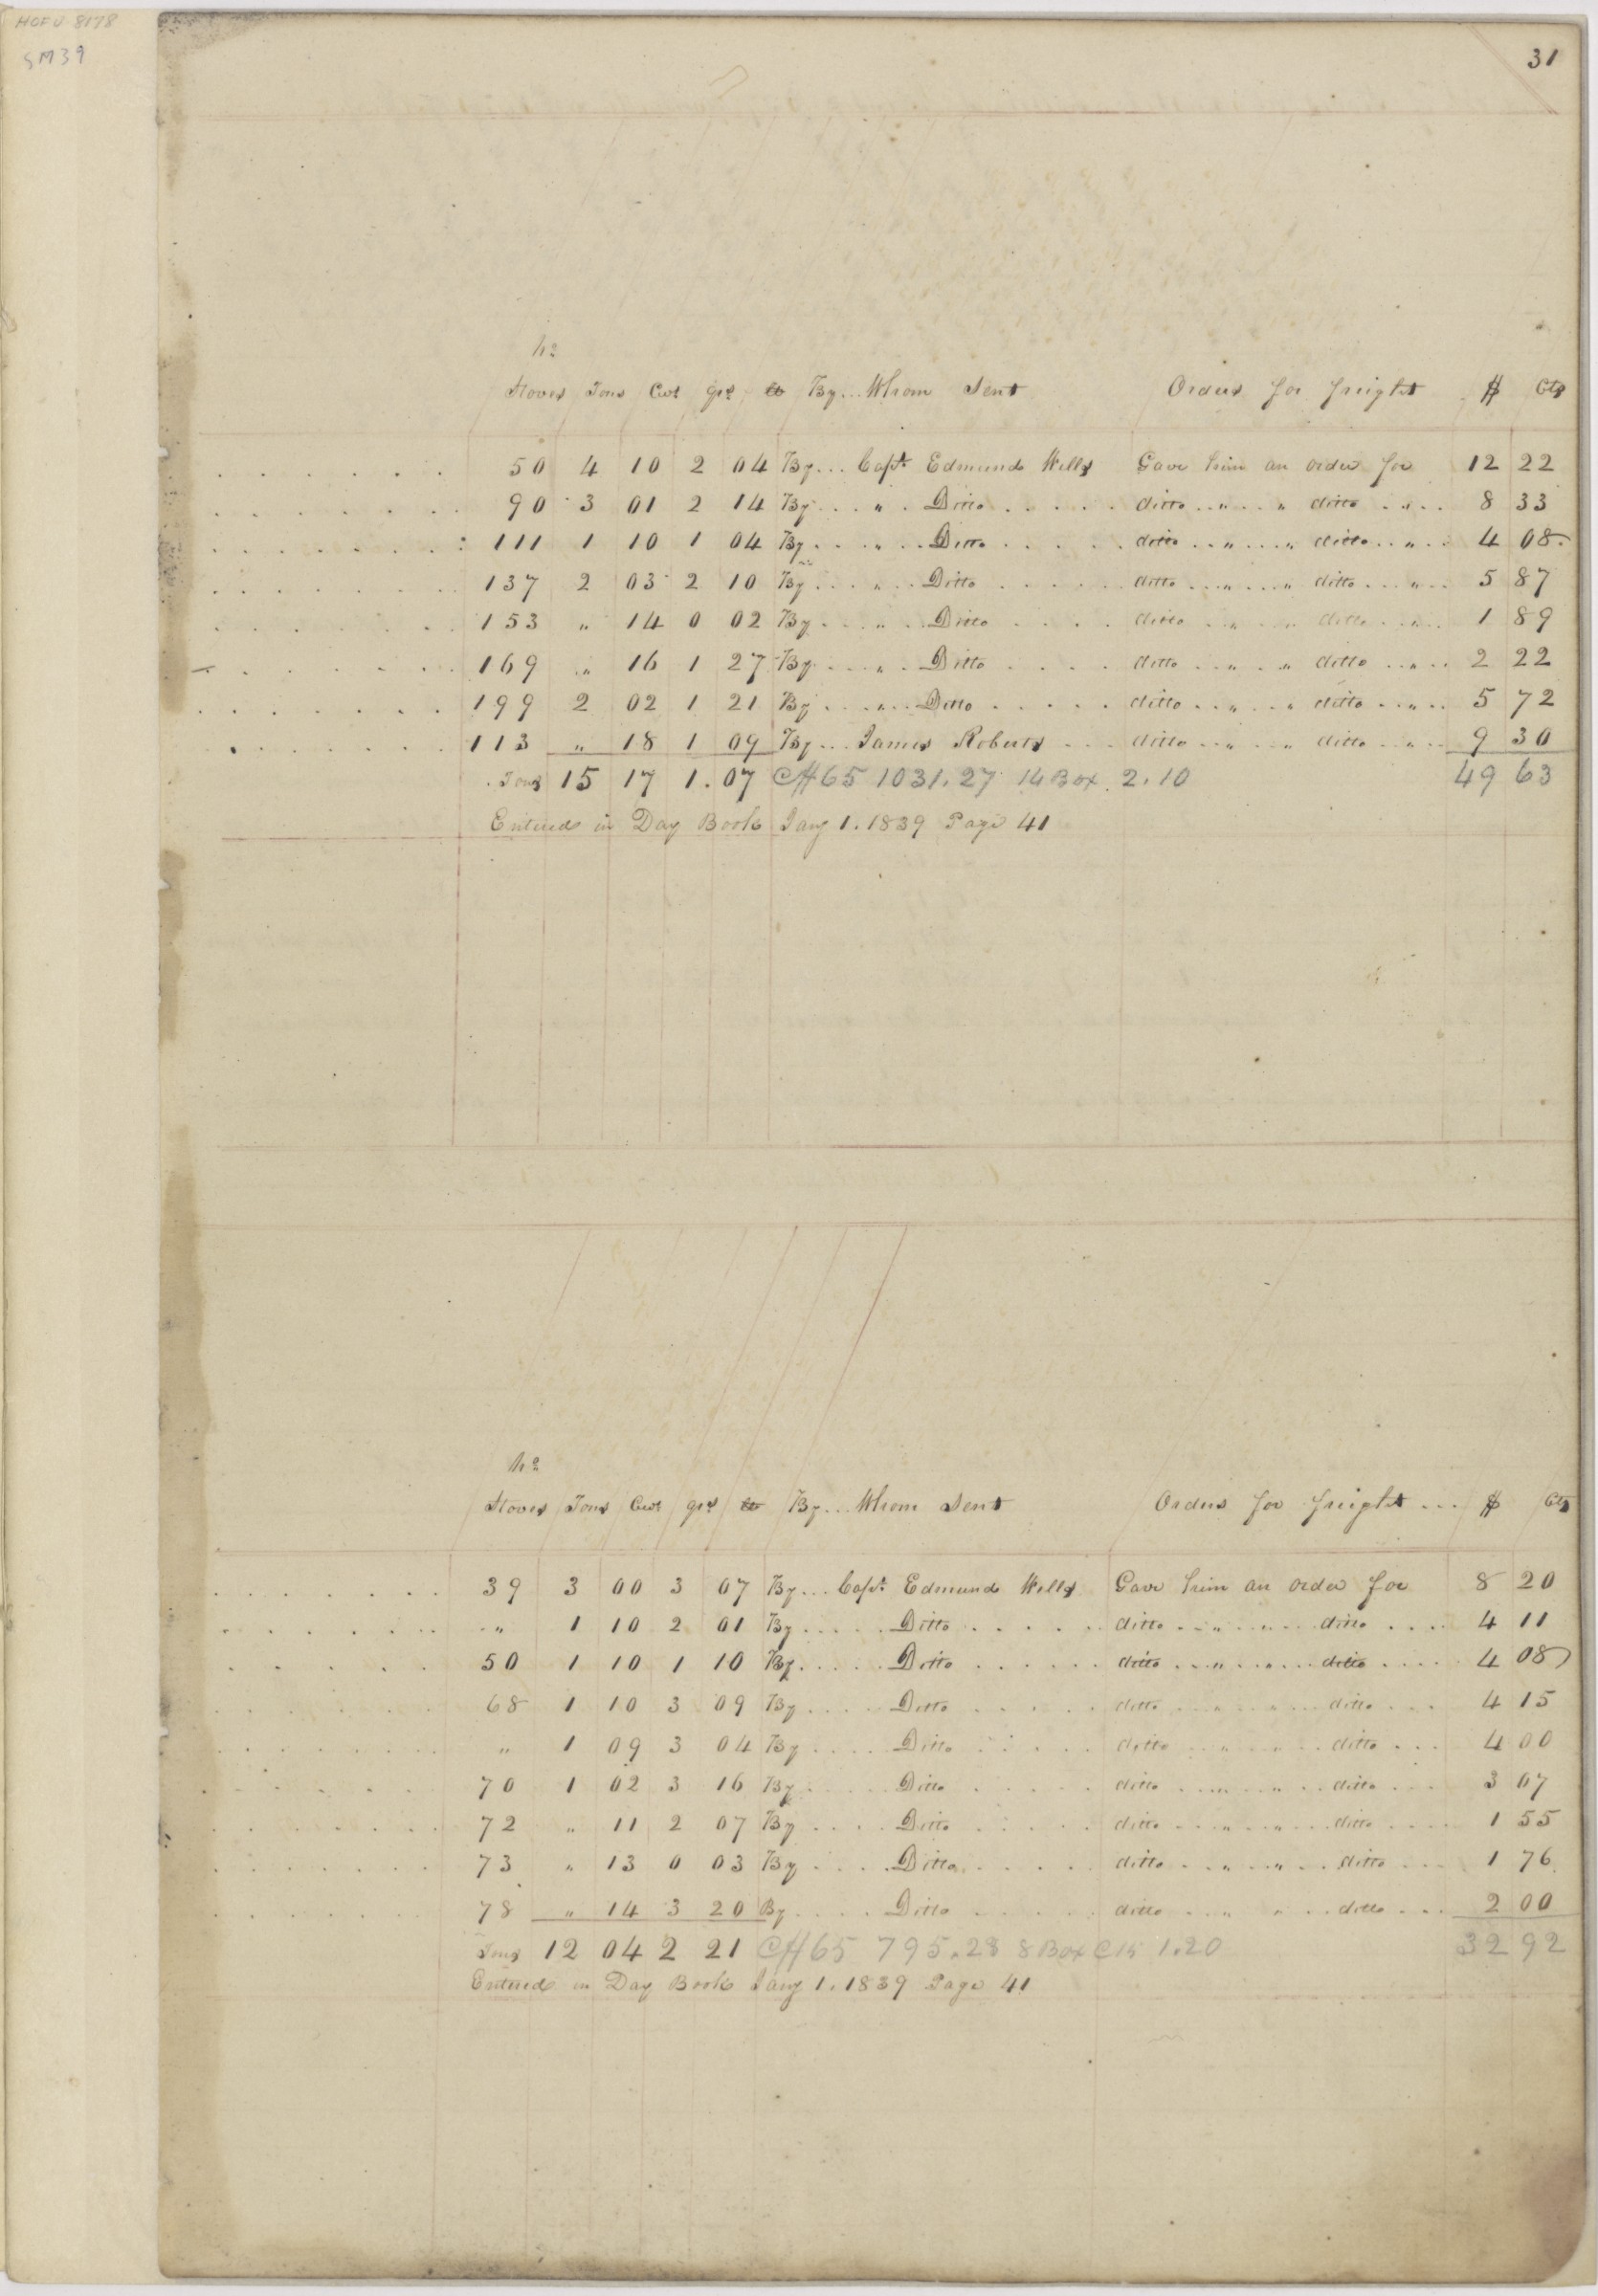 HOFU 8178
SM39
31
No
Stoves Tons Cwt qrs lb By... Whom Sent Orders for freight $ Cts
50 4 10 2 04 By... Capt. Edmund Wells Gave him an order for 12 22
90 3 01 2 14 By... " . Ditto ..... ditto .. " .. " ditto .... 8 33
111 1 10 1 04 By... " . Ditto ..... ditto .. " .. " ditto .. " .. 4 08
137 2 03 2 10 By... " . Ditto ..... ditto .. " .. " ditto .. " .. 5 87
153 " 14 0 02 By... " . Ditto ..... ditto .. " .. " ditto .. " .. 1 89
169 " 16 1 27 By... " . Ditto ..... ditto .. " .. " ditto .. " .. 2 22
199 2 02 1 21 By... " . Ditto ..... ditto .. " .. " ditto .. " .. 5 72
113 " 18 1 09 By... James Roberts ... ditto .. " .. " ditto .. " .. 9 30
Tons 15 17 1.07 @ $65 1031.27 14 Box 2.10 49 63
Entered in Day Book Jany 1. 1839 Page 41
No
Stoves Tons Cwt qrs lb By... Whom Sent Orders for freight ... $ Cts
39 3 00 3 07 By... Capt. Edmund Wells Gave him an order for 8 20
" 1 10 2 01 By..... Ditto ..... ditto .. " .. " .. ditto .... 4 11
50 1 10 1 10 By..... Ditto ..... ditto .. " .. " .. ditto .... 4 08
68 1 10 3 09 By..... Ditto ..... ditto .. " .. " .. ditto ... 4 15
" 1 09 3 04 By..... Ditto ..... ditto .. " .. " .. ditto ... 4 00
70 1 02 3 16 By..... Ditto ..... ditto .. " .. " .. ditto ... 3 07
72 " 11 2 07 By..... Ditto ..... ditto .. " .. " .. ditto .... 1 55
73 " 13 0 03 By..... Ditto ..... ditto .. " .. " .. ditto ... 1 76
78 " 14 3 20 By..... Ditto ..... ditto .. " .. " .. ditto ... 2 00
Tons 12 04 2 21 @ $65 795.28 8 Box @ 15 1.20 32 92
Entered in Day Book Jany 1. 1839 Page 41